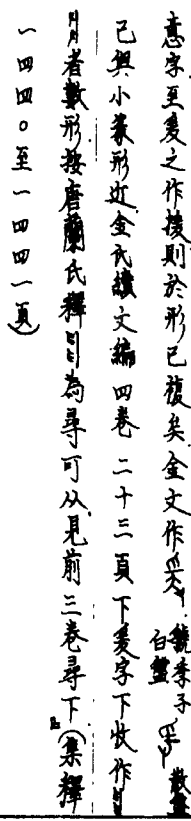 意字至爰之作援則於形已複矣金文作 虢季子白盤 散盤
已與小篆形近金氏續文編四卷二十三頁下爰字下收作
者數形按唐蘭氏釋為尋可从見前三卷尋下」(集釋
一四四〇至一四四一頁)